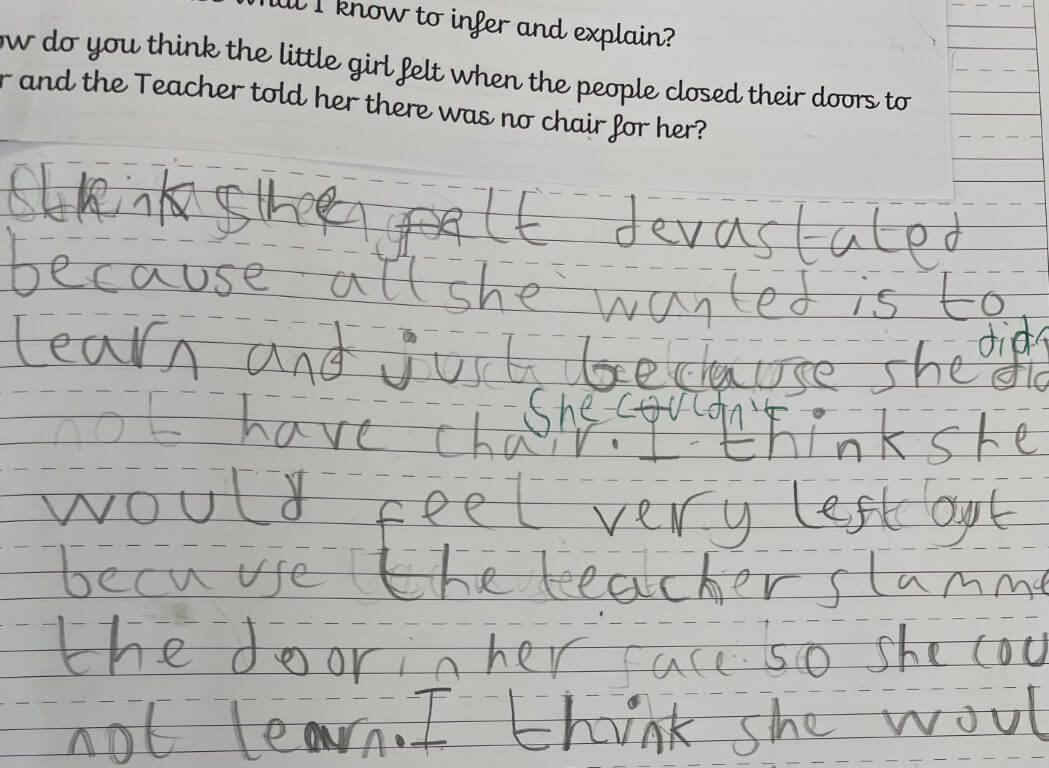 I know to infer and explain?
do you think the little girl felt when the people closed their doors to
and the Teacher told her there was no chair for her?
think she felt devastated
because all she wanted is to
learn and just because she did
She couldn't
not have chair. I think she
would feel very left out
becuause the teacher slamme
the door in her face so she cou
not learn. I think she woul